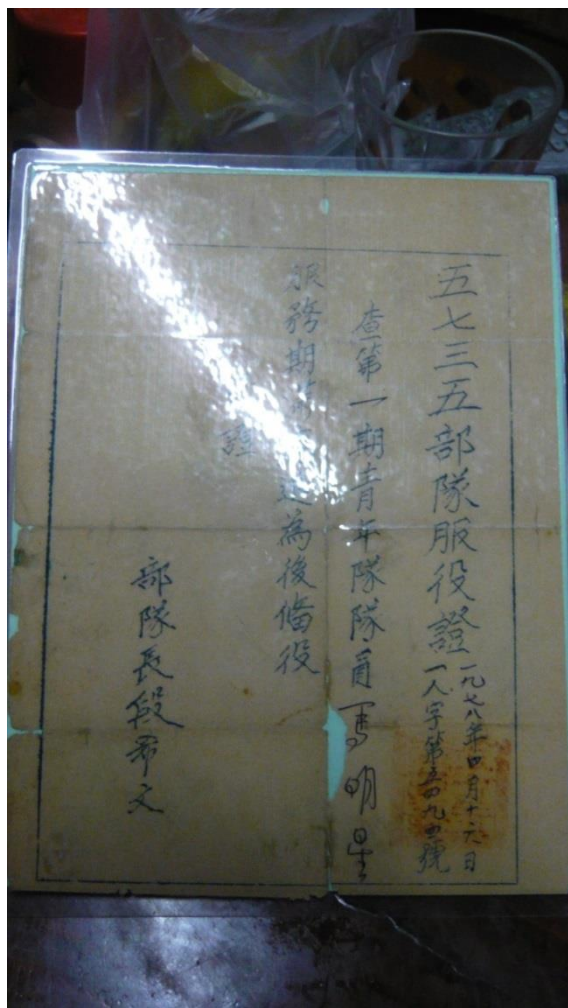 五七三五部隊服役證
一九七八年四月十六日
一人字第五四九五號
查第一期青年隊隊員馬明星
服務期滿 為後備役
證
部隊長段希文